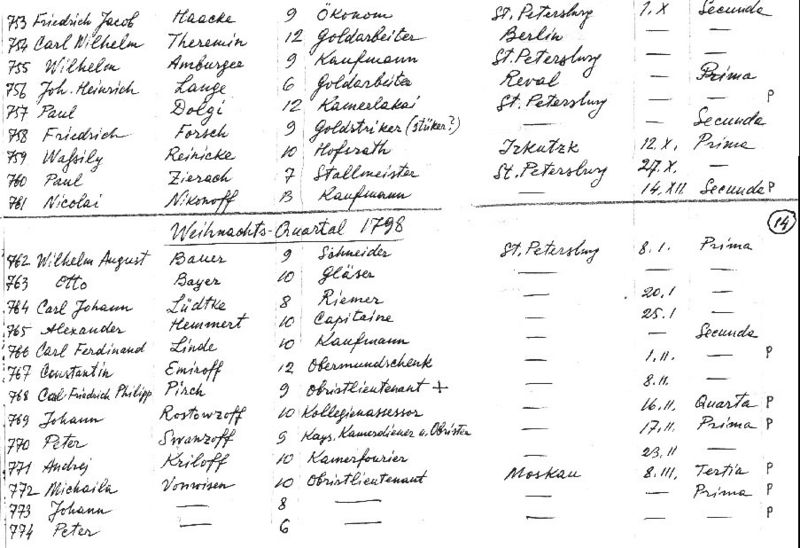 753 Friedrich Jacob Haacke 9 Ökonom St. Petersburg 7. X Secunda
754 Carl Wilhelm Theremin 12 Goldarbeiter Berlin — —
755 Wilhelm Amburger 9 Kaufmann St. Petersburg — —
756 Joh. Heinrich Lange 6 Goldarbeiter Reval — Prima
757 Paul Dolgi 12 Kamerlakai St. Petersburg — — P
758 Friedrich Forsch 9 Goldstriker (stüker?) — Secunda
759 Waßily Reinicke 10 Hofsrath Irkutzk 12. X. Prima
760 Paul Zierach 7 Stallmeister St. Petersburg 27. X. —
761 Nicolai Nikonoff 13 Kaufmann — 14. XII Secunda P
Weihnachts-Quartal 1798 14
762 Wilhelm August Bauer 9 Schneider St. Petersburg 8. 1. Prima
763 Otto Bayer 10 Gläser — — —
764 Carl Johann Lüdtke 8 Riemer — 20. 1 —
765 Alexander Hemmert 10 Capitaine — 25. 1 —
766 Carl Ferdinand Linde 10 Kaufmann — — Secunda
767 Constantin Emiroff 12 Obermundschenk — 1. 11. — P
768 Carl Friedrich Philipp Pirch 9 Obristlieutenant + — 8. 11. —
769 Johann Rostowzoff 10 Kollegienassessor — 16. 11. Quarta P
770 Peter Swanzoff 9 Kays. Kamerdiener u. Obrister — 17. 11. Prima P
771 Andrej Kriloff 10 Kamerfourier — 23. 11 —
772 Michaila Vonwisen 10 Obristlieutenant Moskau 8. III. Tertia P
773 Johann — 8 — — — Prima P
774 Peter — 6 — — — — P